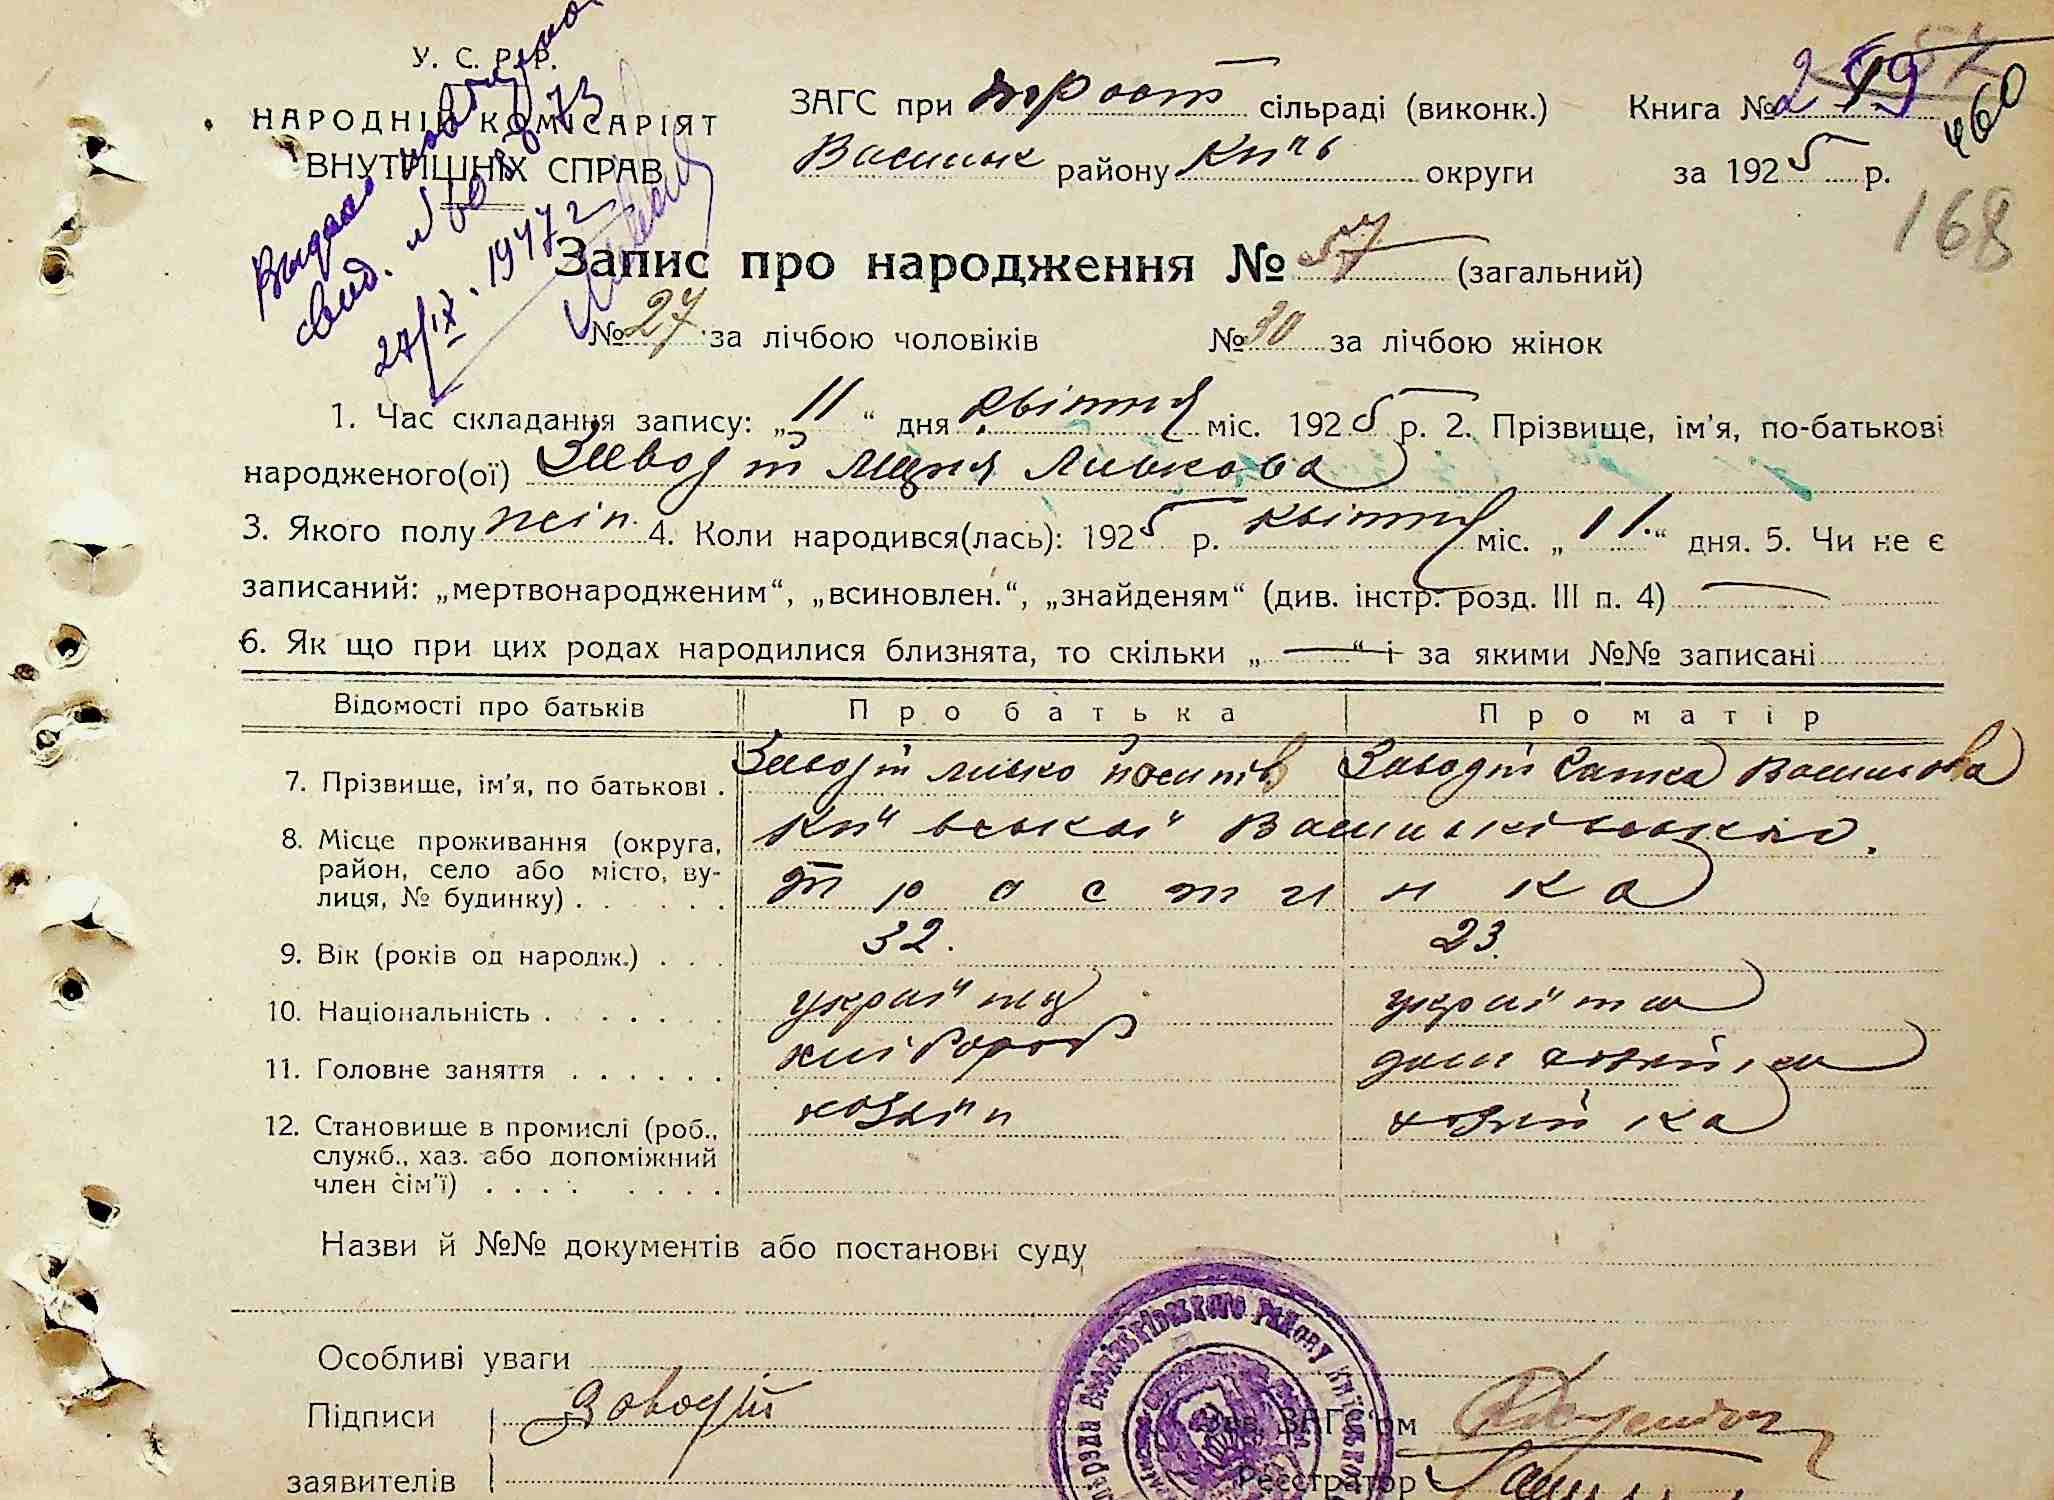 У. С. Р. Р.
НАРОДНІЙ КОМІСАРІЯТ
ВНУТРІШНІХ СПРАВ
Выдано повторно
свид. №
27/IX. 1947 г
ЗАГС при Трост сільраді (виконк.)
Васильк району Київ округи
Книга №
460
за 1925 р.
168
Запис про народження № 57 (загальний)
№ 27 за лічбою чоловіків № 30 за лічбою жінок
1. Час складання запису: „11“ дня квітня міс. 1925 р. 2. Прізвище, ім'я, по-батькові
народженого(ої) Заводій Левкова
3. Якого полу жін. 4. Коли народився(лась): 1925 р. квітня міс. „11“ дня. 5. Чи не є
записаний: „мертвонародженим“, „всиновлен.“, „знайденям“ (див. інстр. розд. III п. 4)
6. Як що при цих родах народилися близнята, то скільки „—“ і за якими №№ записані
Відомості про батьків Про батька Про матір
7. Прізвище, ім'я, по батькові . Заводій Левко Йосипів Заводій Василева
8. Місце проживання (округа, район, село або місто, вулиця, № будинку) . Київської Васильківського
Тростинка
9. Вік (років од народж.) . . . 32. 23.
10. Національність . українц українка
11. Головне заняття . хлібороб дом хозяйка
12. Становище в промислі (роб., служб., хаз. або допоміжний член сім'ї) . хозяїн хозяйка
Назви й №№ документів або постанови суду
Особливі уваги
Підписи Заводій
заявителів
Зав. ЗАГС'ом
Реєстратор
Васильківського району Київсько